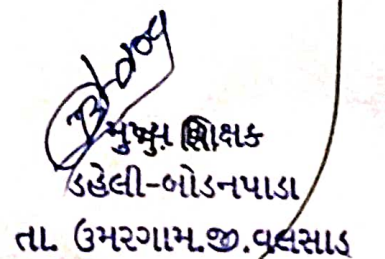 મુખ્ય શિક્ષક
ડહેલી-બોડનપાડા
તા. ઉમરગામ.જી.વલસાડ